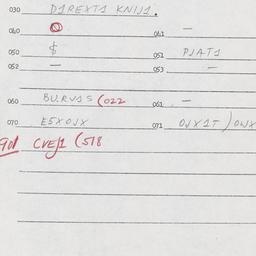 030 DIREXTI KNIJI.
040 N 041 —
050 $ 051 PJATI
052 — 053 —
060 BU.RVIS (022 061 —
070 E5XOJX 071 OJX1T ) OWX
901 CVEJI (518